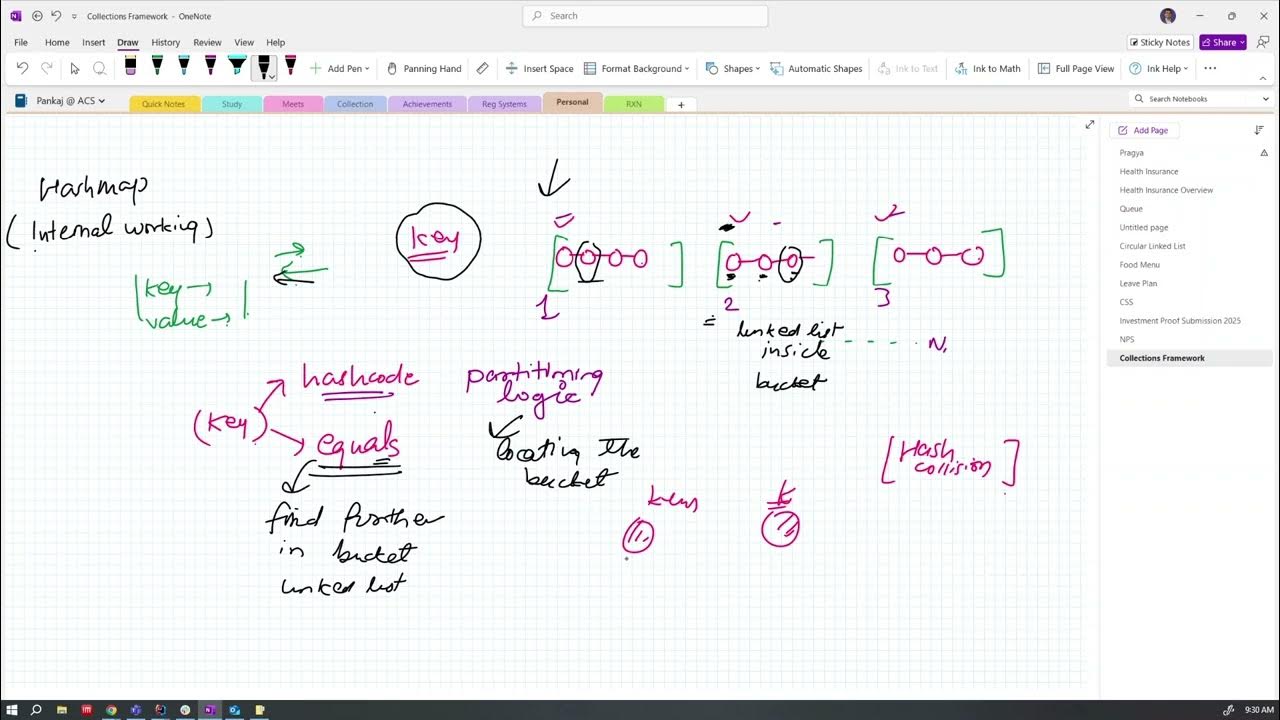 Collections Framework - OneNote
Search
File Home Insert Draw History Review View Help
Sticky Notes
Share
Add Pen
Panning Hand
Insert Space
Format Background
Shapes
Automatic Shapes
Ink to Text
Ink to Math
Full Page View
Ink Help
Pankaj @ ACS
Quick Notes
Study
Meets
Collection
Achievements
Reg Systems
Personal
RXN
+
Search Notebooks
Add Page
Pragya
Health Insurance
Health Insurance Overview
Queue
Untitled page
Circular Linked List
Food Menu
Leave Plan
CSS
Investment Proof Submission 2025
NPS
Collections Framework
Hashmap
(Internal working)
key →
value →
key
1
2
3
= linked list
inside
bucket
N.
(key)
hashcode
equals
find further
in bucket
linked list
partitining
logic
locating the
bucket
k
[Hash
collision]
9:30 AM